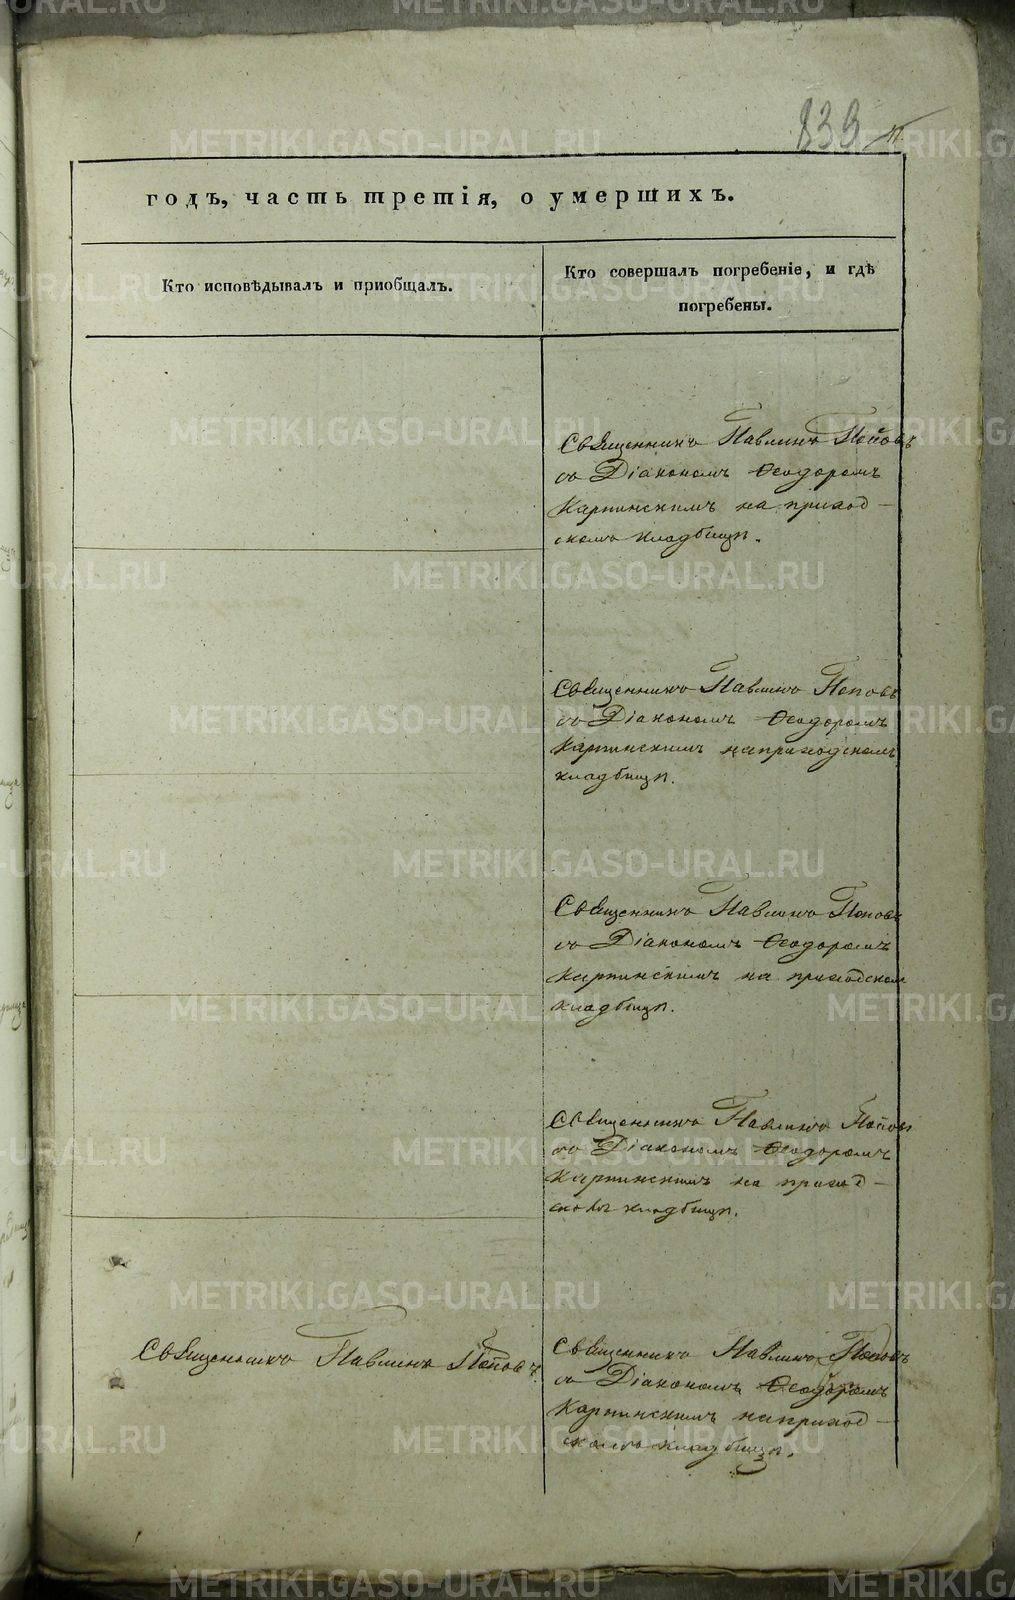 839
годъ, часть третія, о умершихъ.
Кто исповѣдывалъ и приобщалъ.
Кто совершалъ погребеніе, и гдѣ
погребены.
Священникъ Павлинъ Поповъ
съ Діакономъ Ѳеодоромъ
Карпинскимъ на приход-
скомъ кладбищѣ.
Священникъ Павлинъ Поповъ
съ Діакономъ Ѳеодоромъ
Карпинскимъ на приходскомъ
кладбищѣ.
Священникъ Павлинъ Поповъ
съ Діакономъ Ѳеодоромъ
Карпинскимъ на приходском
кладбищѣ.
Священникъ Павлинъ Попов
съ Діакономъ Ѳеодоромъ
Карпинскимъ на приход-
скомъ кладбищѣ.
Священникъ Павлинъ Поповъ.
Священникъ Павлинъ Поповъ
съ Діакономъ Ѳеодоромъ
Карпинскимъ на приход-
скомъ кладбищѣ.
METRIKI.GASO-URAL.RU